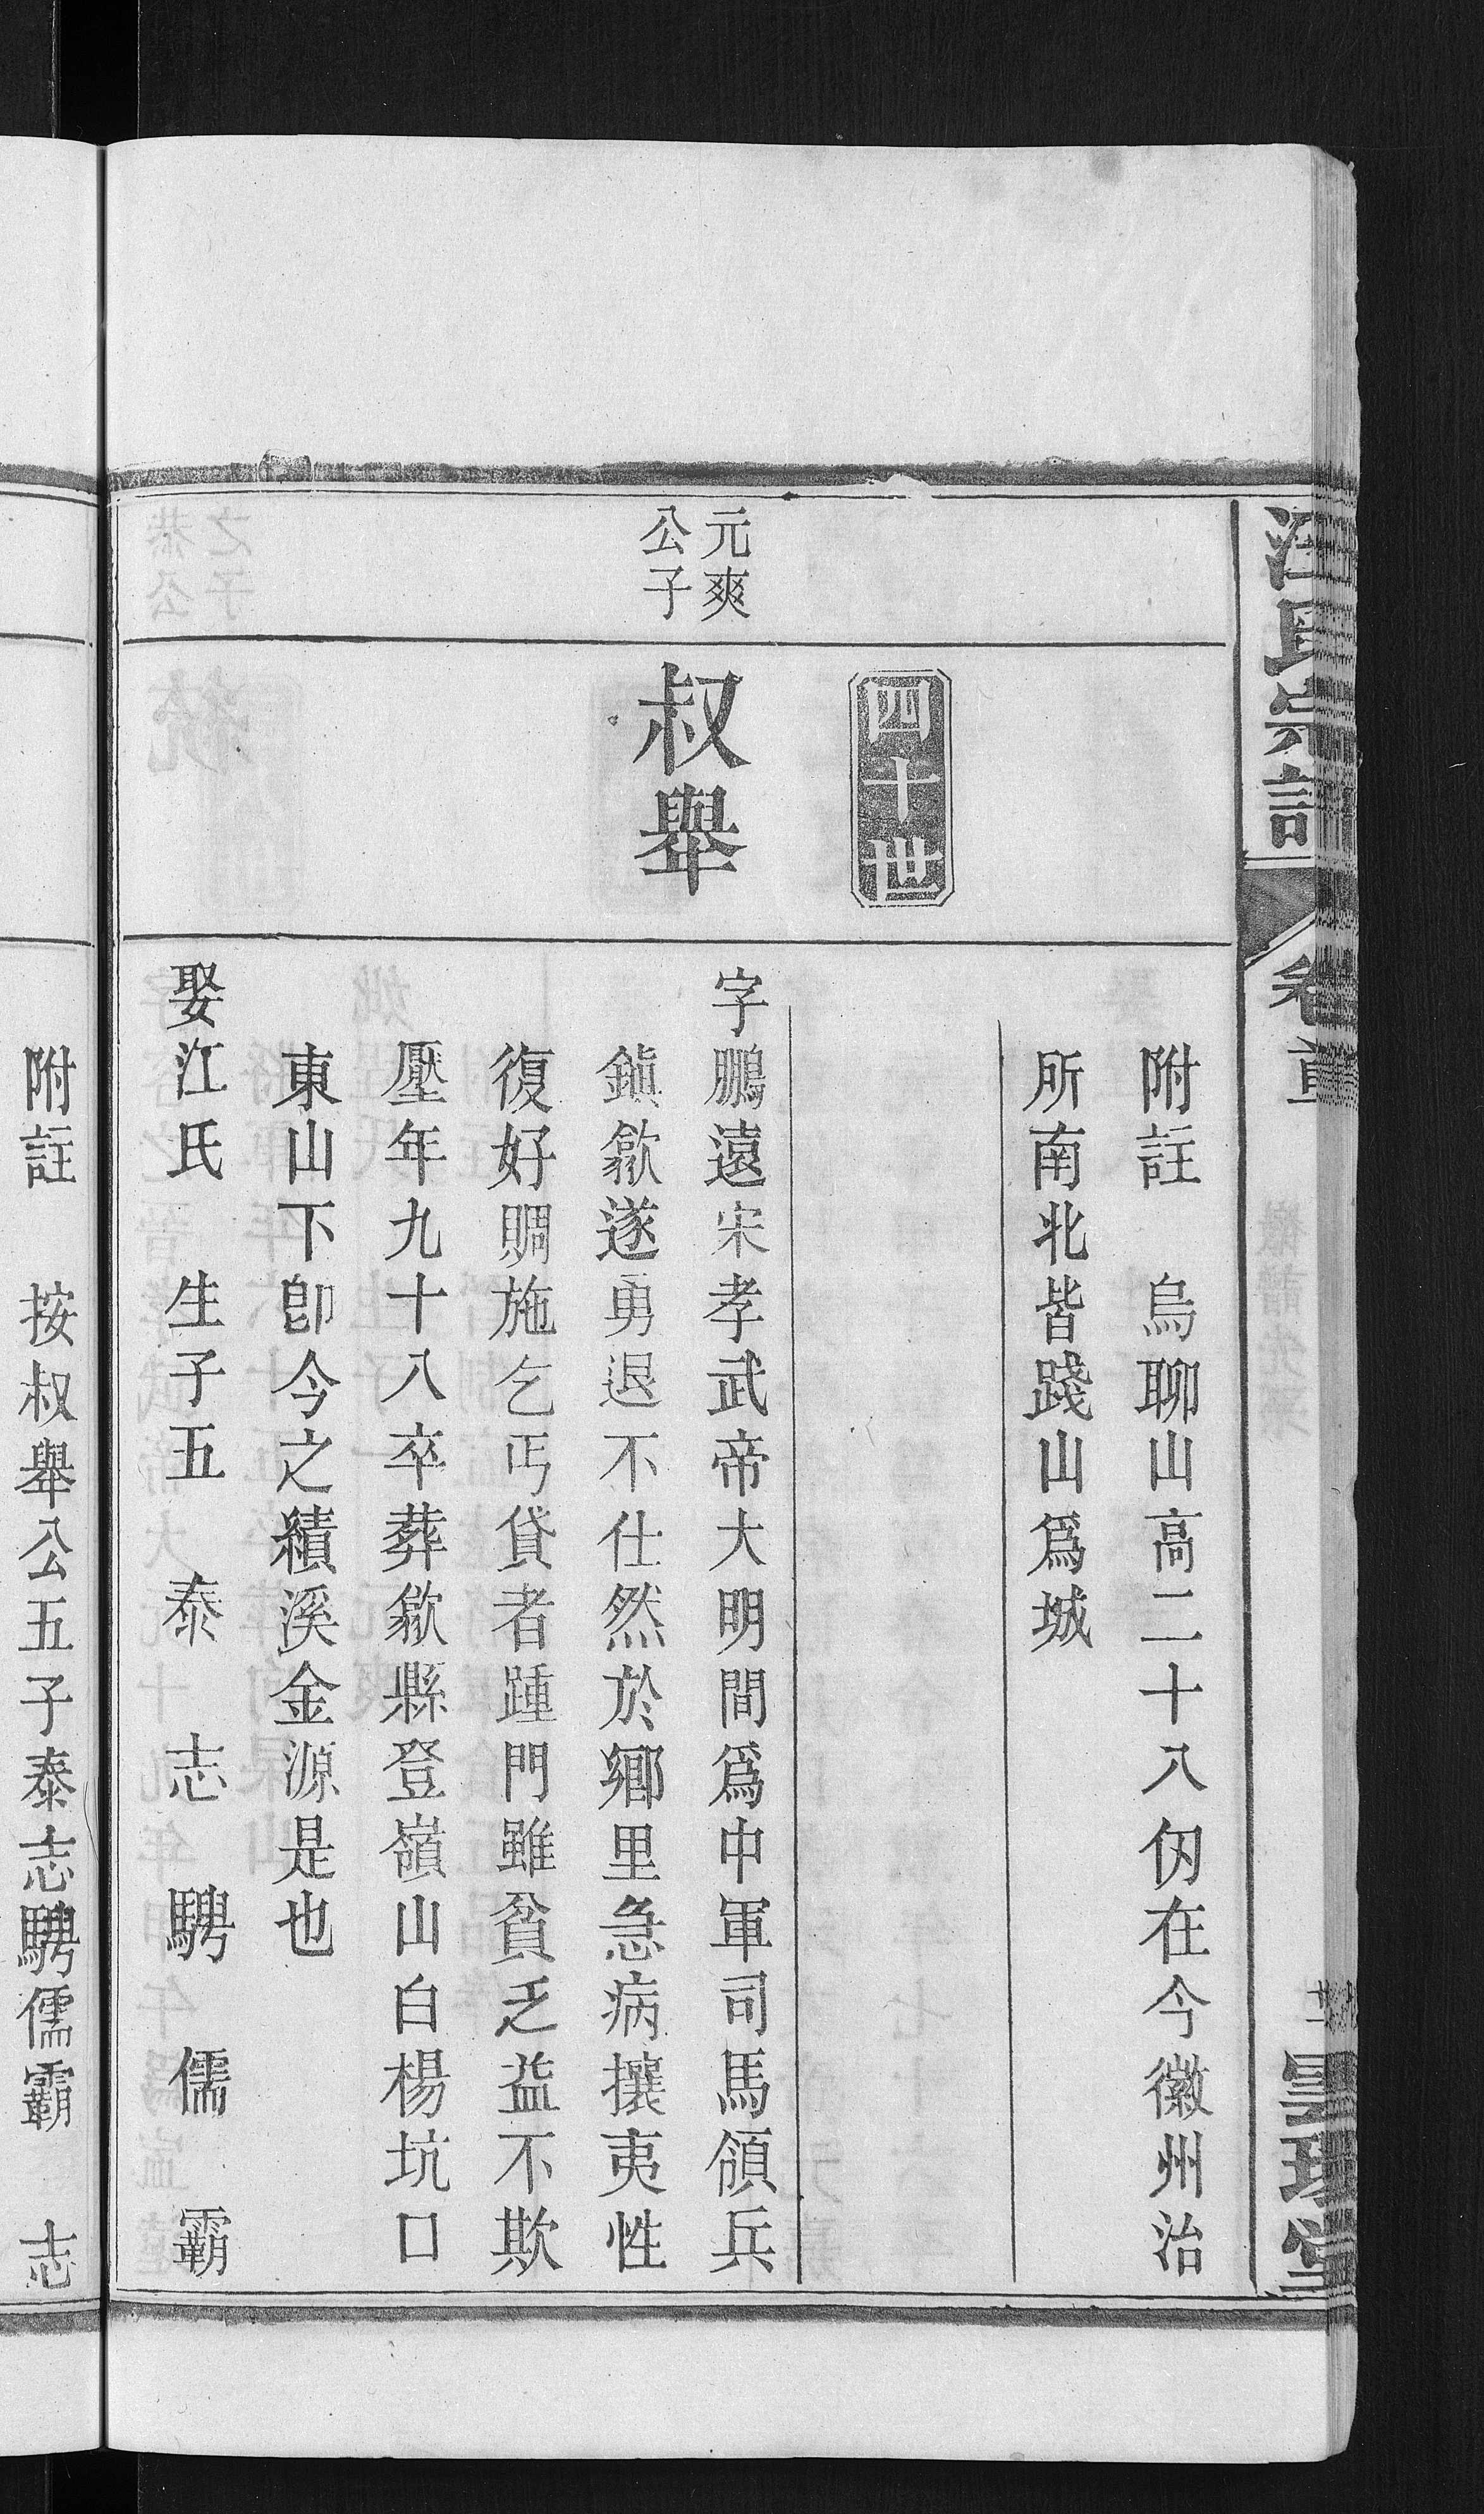 汪氏宗譜
卷首
附註　烏聊山高二十八仞在今徽州治
所南北皆踐山爲城
四十世
元爽
公子
叔舉
字鵬遠宋孝武帝大明間爲中軍司馬領兵
鎮歙遂勇退不仕然於鄉里急病攘夷性
復好賙施乞丐貸者踵門雖貧乏益不欺
壓年九十八卒葬歙縣登嶺山白楊坑口
東山下卽今之績溪金源是也
娶江氏　生子五　泰　志　騁　儒　霸
附註　按叔舉公五子泰志騁儒霸　志